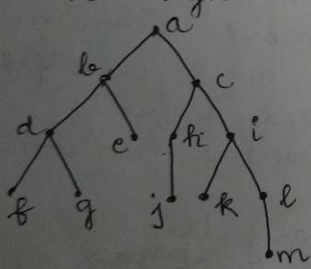 a
b c
d e h i
f g j k l
m